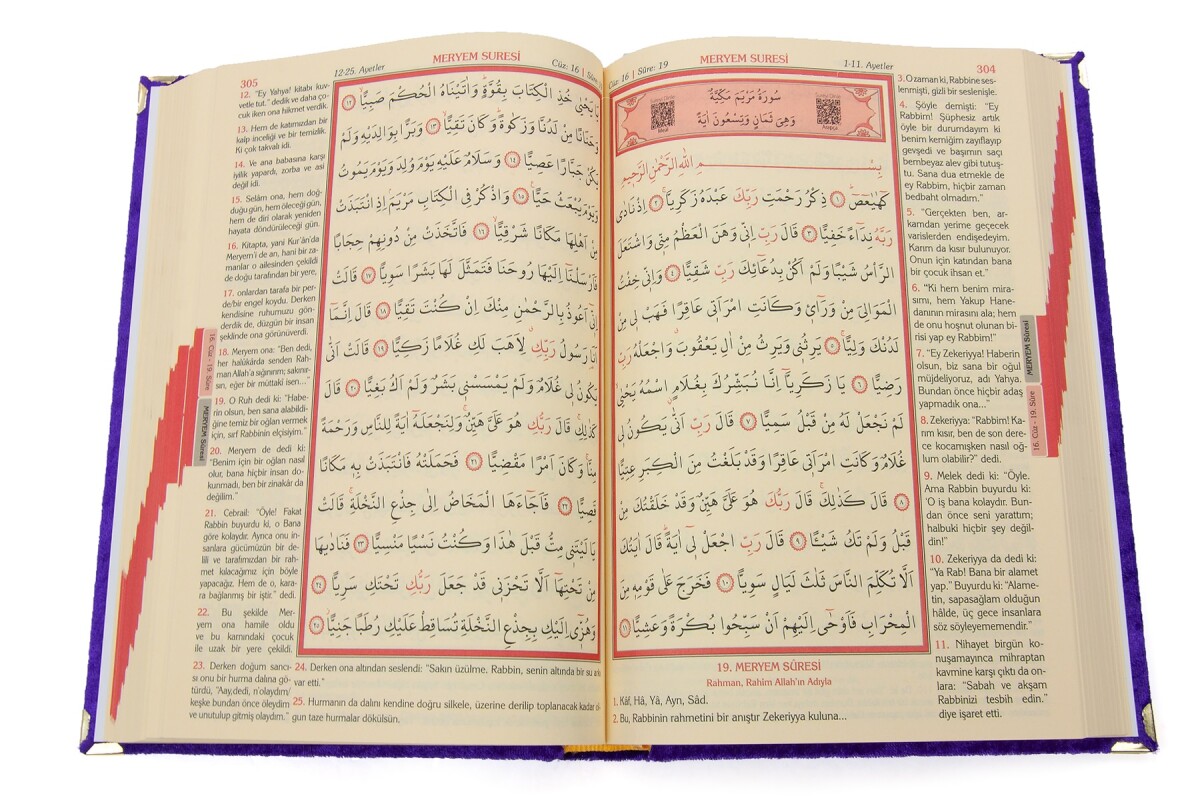 304
1-11. Ayetler
MERYEM SURESİ
Cüz: 16 | Sûre: 19
سُورَةُ مَرْيَمَ مَكِّيَّةٌ
وَهِيَ ثَمَانٍ وَتِسْعُونَ اٰيَةً
بِسْمِ اللّٰهِ الرَّحْمٰنِ الرَّحِيمِ
كٓهٰيٰعٓصٓ ﴿١﴾ ذِكْرُ رَحْمَتِ رَبِّكَ عَبْدَهُ زَكَرِيَّا ﴿٢﴾ اِذْ نَادٰى
رَبَّهُ نِدَٓاءً خَفِيًّا ﴿٣﴾ قَالَ رَبِّ اِنّٖي وَهَنَ الْعَظْمُ مِنّٖي وَاشْتَعَلَ
الرَّأْسُ شَيْبًا وَلَمْ اَكُنْ بِدُعَٓائِكَ رَبِّ شَقِيًّا ﴿٤﴾ وَاِنّٖي خِفْتُ
الْمَوَالِيَ مِنْ وَرَٓائٖي وَكَانَتِ امْرَاَتٖي عَاقِرًا فَهَبْ لٖي مِنْ
لَدُنْكَ وَلِيًّا ﴿٥﴾ يَرِثُنٖي وَيَرِثُ مِنْ اٰلِ يَعْقُوبَ وَاجْعَلْهُ رَبِّ
رَضِيًّا ﴿٦﴾ يَا زَكَرِيَّٓا اِنَّا نُبَشِّرُكَ بِغُلَامٍ اسْمُهُ يَحْيٰى
لَمْ نَجْعَلْ لَهُ مِنْ قَبْلُ سَمِيًّا ﴿٧﴾ قَالَ رَبِّ اَنّٰى يَكُونُ لٖي
غُلَامٌ وَكَانَتِ امْرَاَتٖي عَاقِرًا وَقَدْ بَلَغْتُ مِنَ الْكِبَرِ عِتِيًّا
﴿٨﴾ قَالَ كَذٰلِكَ قَالَ رَبُّكَ هُوَ عَلَيَّ هَيِّنٌ وَقَدْ خَلَقْتُكَ مِنْ
قَبْلُ وَلَمْ تَكُ شَيْـًٔا ﴿٩﴾ قَالَ رَبِّ اجْعَلْ لٖٓي اٰيَةً قَالَ اٰيَتُكَ
اَلَّا تُكَلِّمَ النَّاسَ ثَلٰثَ لَيَالٍ سَوِيًّا ﴿١٠﴾ فَخَرَجَ عَلٰى قَوْمِهٖ مِنَ
الْمِحْرَابِ فَاَوْحٰٓى اِلَيْهِمْ اَنْ سَبِّحُوا بُكْرَةً وَعَشِيًّا ﴿١١﴾
19. MERYEM SÛRESİ
Rahman, Rahîm Allah'ın Adıyla
1. Kâf, Hâ, Yâ, Ayn, Sâd.
2. Bu, Rabbinin rahmetini bir anıştır Zekeriyya kuluna...
3. O zaman ki, Rabbine ses-
lenmişti, gizli bir seslenişle.
4. Şöyle demişti: "Ey
Rabbim! Şüphesiz artık
öyle bir durumdayım ki
benim kemiğim zayıflayıp
gevşedi ve başımın saçı
bembeyaz alev gibi tutuş-
tu. Sana dua etmekle de
ey Rabbim, hiçbir zaman
bedbaht olmadım."
5. "Gerçekten ben, ar-
kamdan yerime geçecek
varislerden endişedeyim.
Karım da kısır bulunuyor.
Onun için katından bana
bir çocuk ihsan et."
6. "Ki hem benim mira-
sımı, hem Yakup Hane-
danının mirasını ala; hem
de onu hoşnut olunan bi-
risi yap ey Rabbim!"
7. "Ey Zekeriyya! Haberin
olsun, biz sana bir oğul
müjdeliyoruz, adı Yahya.
Bundan önce hiçbir adaş
yapmadık ona..."
8. Zekeriyya: "Rabbim! Ka-
rım kısır, ben de son dere-
ce kocamışken nasıl oğ-
lum olabilir?" dedi.
9. Melek dedi ki: "Öyle.
Ama Rabbin buyurdu ki:
'O iş bana kolaydır. Bun-
dan önce seni yarattım;
halbuki hiçbir şey değil-
din!"
10. Zekeriyya da dedi ki:
"Ya Rab! Bana bir alamet
yap." Buyurdu ki: "Alame-
tin, sapasağlam olduğun
hâlde, üç gece insanlara
söz söyleyememendir."
11. Nihayet birgün ko-
nuşamayınca mihraptan
kavmine karşı çıktı da on-
lara: "Sabah ve akşam
Rabbinizi tesbih edin."
diye işaret etti.
MERYEM Sûresi
16. Cüz - 19. Sûre
305
12-25. Ayetler
MERYEM SURESİ
Cüz: 16 | Sûre
يَا يَحْيٰى خُذِ الْكِتَابَ بِقُوَّةٍ وَاٰتَيْنَاهُ الْحُكْمَ صَبِيًّا ﴿١٢﴾
وَحَنَانًا مِنْ لَدُنَّا وَزَكٰوةً وَكَانَ تَقِيًّا ﴿١٣﴾ وَبَرًّا بِوَالِدَيْهِ وَلَمْ
يَكُنْ جَبَّارًا عَصِيًّا ﴿١٤﴾ وَسَلَامٌ عَلَيْهِ يَوْمَ وُلِدَ وَيَوْمَ يَمُوتُ
وَيَوْمَ يُبْعَثُ حَيًّا ﴿١٥﴾ وَاذْكُرْ فِي الْكِتَابِ مَرْيَمَ اِذِ انْتَبَذَتْ
مِنْ اَهْلِهَا مَكَانًا شَرْقِيًّا ﴿١٦﴾ فَاتَّخَذَتْ مِنْ دُونِهِمْ حِجَابًا
فَاَرْسَلْنَٓا اِلَيْهَا رُوحَنَا فَتَمَثَّلَ لَهَا بَشَرًا سَوِيًّا ﴿١٧﴾ قَالَتْ
اِنّٖٓي اَعُوذُ بِالرَّحْمٰنِ مِنْكَ اِنْ كُنْتَ تَقِيًّا ﴿١٨﴾ قَالَ اِنَّمَٓا
اَنَا رَسُولُ رَبِّكِ لِاَهَبَ لَكِ غُلَامًا زَكِيًّا ﴿١٩﴾ قَالَتْ اَنّٰى
يَكُونُ لٖي غُلَامٌ وَلَمْ يَمْسَسْنٖي بَشَرٌ وَلَمْ اَكُ بَغِيًّا ﴿٢٠﴾ قَالَ
كَذٰلِكِ قَالَ رَبُّكِ هُوَ عَلَيَّ هَيِّنٌ وَلِنَجْعَلَهُٓ اٰيَةً لِلنَّاسِ وَرَحْمَةً
مِنَّا وَكَانَ اَمْرًا مَقْضِيًّا ﴿٢١﴾ فَحَمَلَتْهُ فَانْتَبَذَتْ بِهٖ مَكَانًا
قَصِيًّا ﴿٢٢﴾ فَاَجَٓاءَهَا الْمَخَاضُ اِلٰى جِذْعِ النَّخْلَةِ قَالَتْ
يَا لَيْتَنٖي مِتُّ قَبْلَ هٰذَا وَكُنْتُ نَسْيًا مَنْسِيًّا ﴿٢٣﴾ فَنَادٰيهَا
مِنْ تَحْتِهَٓا اَلَّا تَحْزَنٖي قَدْ جَعَلَ رَبُّكِ تَحْتَكِ سَرِيًّا ﴿٢٤﴾
وَهُزّٖٓي اِلَيْكِ بِجِذْعِ النَّخْلَةِ تُسَاقِطْ عَلَيْكِ رُطَبًا جَنِيًّا ﴿٢٥﴾
12. "Ey Yahya! kitabı kuv-
vetle tut." dedik ve daha ço-
cuk iken ona hikmet verdik.
13. Hem de katımızdan bir
kalp inceliği ve bir temizlik.
Ki çok takvalı idi.
14. Ve ana babasına karşı
iyilik yapardı, zorba ve asi
değil idi.
15. Selâm ona, hem doğ-
duğu gün, hem öleceği gün,
hem de diri olarak yeniden
hayata döndürüleceği gün.
16. Kitapta, yani Kur'ân'da
Meryem'i de an, hani bir za-
manlar o ailesinden çekildi
de doğu tarafından bir yere,
17. onlardan tarafa bir per-
de/bir engel koydu. Derken
kendisine ruhumuzu gön-
derdik de, düzgün bir insan
şeklinde ona görünüverdi.
18. Meryem ona: "Ben dedi,
her halûkârda senden Rah-
man Allah'a sığınırım; sakınır-
san, eğer bir müttakî isen..."
19. O Ruh dedi ki: "Habe-
rin olsun, ben sana alabildi-
ğine temiz bir oğlan vermek
için, sırf Rabbinin elçisiyim."
20. Meryem de dedi ki:
"Benim için bir oğlan nasıl
olur, bana hiçbir insan do-
kunmadı, ben bir zinakâr da
değilim."
21. Cebrail: "Öyle! Fakat
Rabbin buyurdu ki, o Bana
göre kolaydır. Ayrıca onu in-
sanlara gücümüzün bir de-
lili ve tarafımızdan bir rah-
met kılacağımız için böyle
yapacağız. Hem de o, kara-
ra bağlanmış bir iştir." dedi.
22. Bu şekilde Mer-
yem ona hamile oldu
ve bu karnındaki çocuk
ile uzak bir yere çekildi.
23. Derken doğum sancı-
sı onu bir hurma dalına gö-
türdü, "Aay, dedi, n'olaydım/
keşke bundan önce öleydim
ve unutulup gitmiş olaydım."
24. Derken ona altından seslendi: "Sakın üzülme, Rabbin, senin altında bir su arkı
var etti."
25. Hurmanın da dalını kendine doğru silkele, üzerine derilip toplanacak kadar ol-
gun taze hurmalar dökülsün.
16. Cüz - 19. Sûre
MERYEM Sûresi